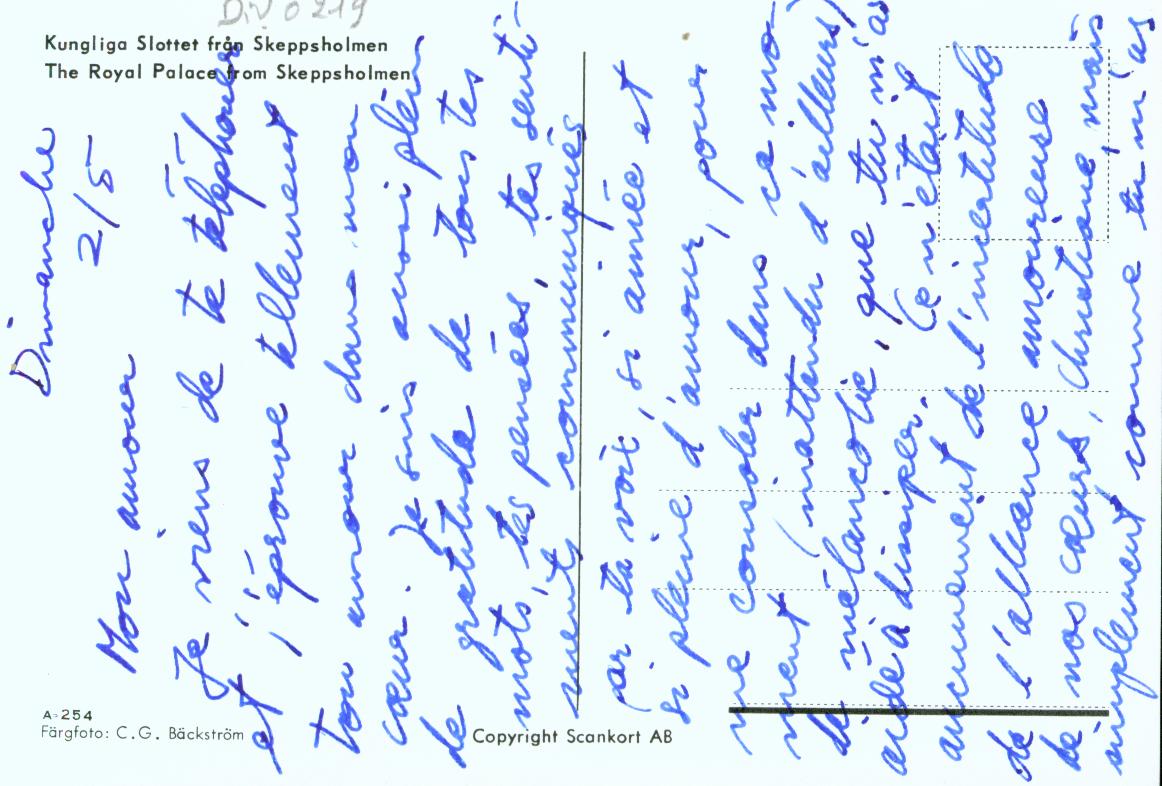 Div 0219
Kungliga Slottet från Skeppsholmen
The Royal Palace from Skeppsholmen
Dimanche
2/5
Mon amour
Je viens de te téléphoner
et j'éprouve tellement
ton amour dans mon
cœur. Je suis aussi plein
de gratitude de tous tes
mots, tes pensées, tes senti-
ments communiqués
par ta voix, si aimée et
si pleine d'amour, pour
me consoler dans ce mo-
ment (inattendu d'ailleurs)
de mélancolie, que tu m'as
aidé à dissiper. Ce n'était
aucunement de l'incertitude
de l'alliance amoureuse
de nos cœurs, Christiane, mais
simplement comme tu m'as
A-254
Färgfoto: C.G. Bäckström
Copyright Scankort AB